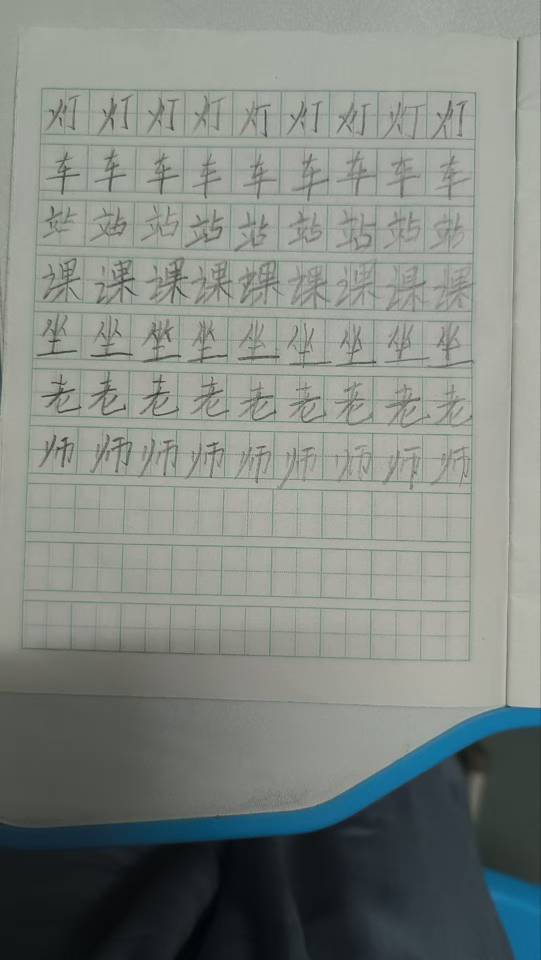 灯灯灯灯灯灯灯灯灯
车车车车车车车车车
站站站站站站站站站
课课课课课课课课课
坐坐坐坐坐坐坐坐坐
老老老老老老老老老
师师师师师师师师师